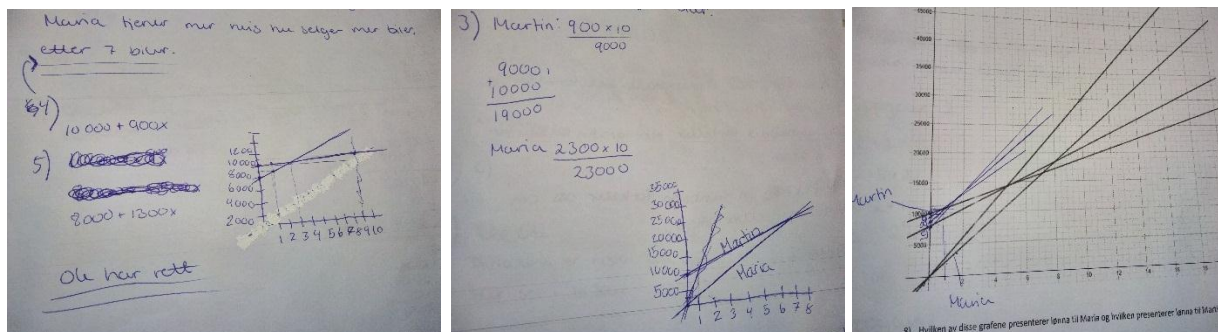 Maria tjener mer hvis hu selger mer biler.
etter 7 biler.
4)
10 000 + 900x
5)
8000 + 1300x
Ole har rett
10000
8000
6000
4000
2000
1 2 3 4 5 6 7 8 9 10
3) Martin: 900 x 10
9000
9000
+
10000
19000
Maria 2300 x 10
23000
35000
30000
25000
20000
15000
10000
5000
Martin
Maria
1 2 3 4 5 6 7 8
45000
40000
35000
30000
25000
20000
15000
10000
5000
Martin
Maria
2 4 6 8 10 12 14 16 18
8) Hvilken av disse grafene presenterer lønna til Maria og hvilken presenterer lønna til Mart